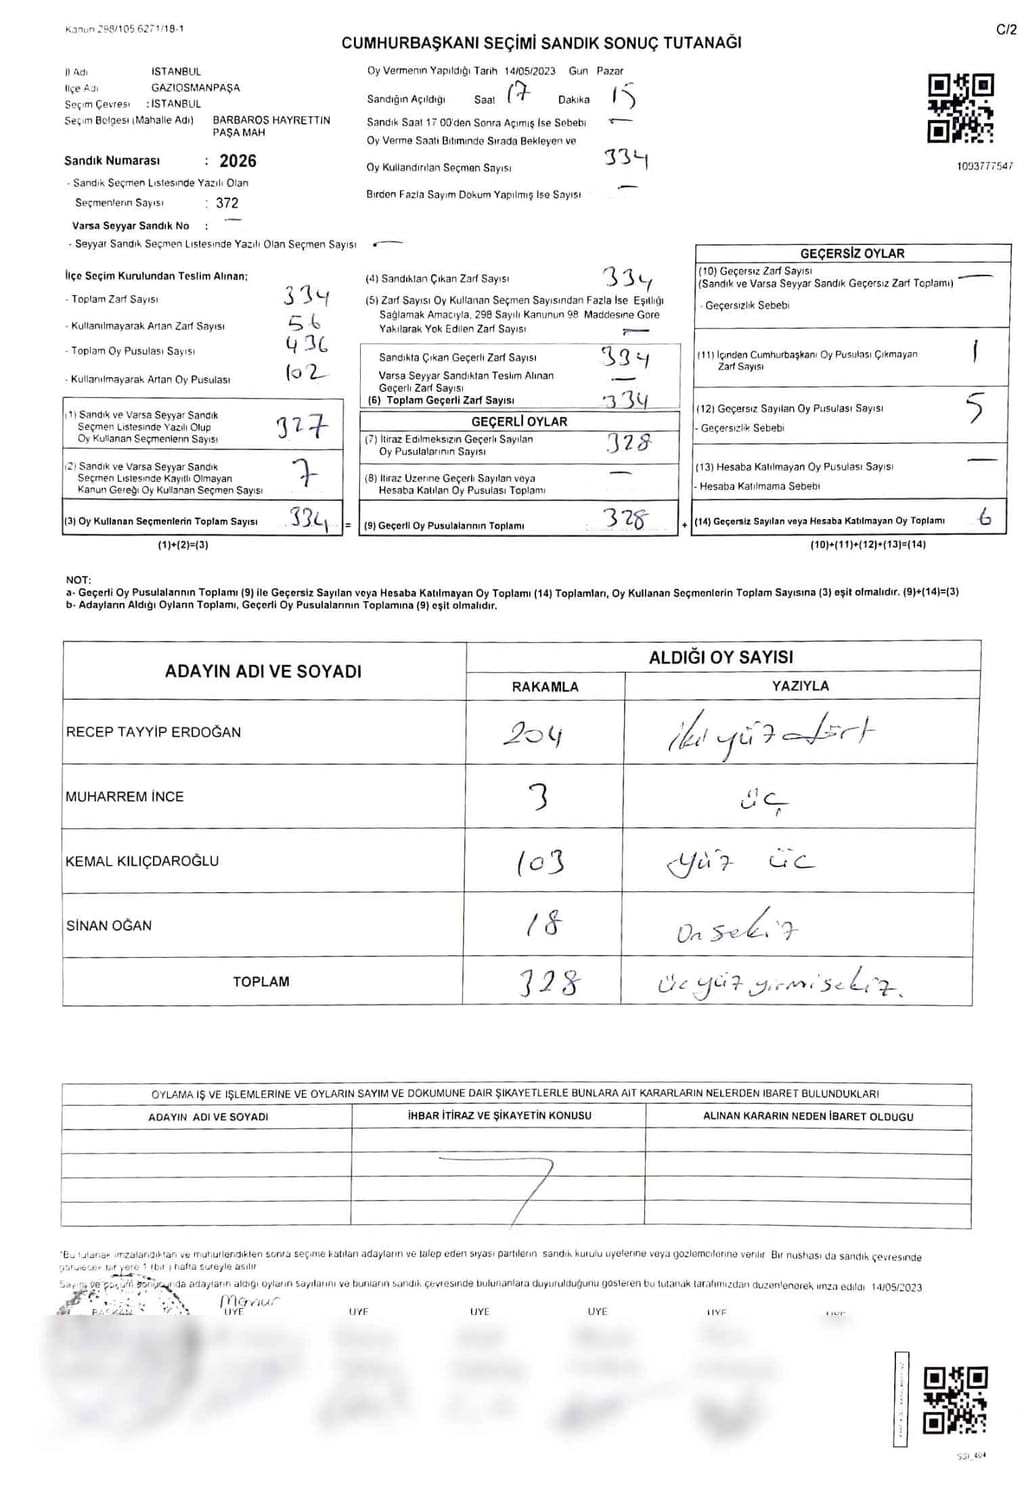 Kanun 298/105.6271/18-1
C/2
CUMHURBAŞKANI SEÇİMİ SANDIK SONUÇ TUTANAĞI
İl Adı İSTANBUL
İlçe Adı GAZİOSMANPAŞA
Seçim Çevresi : İSTANBUL
Seçim Bölgesi (Mahalle Adı) BARBAROS HAYRETTİN
PAŞA MAH
Sandık Numarası : 2026
- Sandık Seçmen Listesinde Yazılı Olan
Seçmenlerin Sayısı : 372
Varsa Seyyar Sandık No : —
- Seyyar Sandık Seçmen Listesinde Yazılı Olan Seçmen Sayısı —
Oy Vermenin Yapıldığı Tarih 14/05/2023 Gün Pazar
Sandığın Açıldığı Saat 17 Dakika 15
Sandık Saat 17 00'den Sonra Açımış İse Sebebi —
Oy Verme Saati Bitiminde Sırada Bekleyen ve
Oy Kullandırılan Seçmen Sayısı 334
Birden Fazla Sayım Döküm Yapılmış İse Sayısı —
1093777547
İlçe Seçim Kurulundan Teslim Alınan;
- Toplam Zarf Sayısı 334
- Kullanılmayarak Artan Zarf Sayısı 56
- Toplam Oy Pusulası Sayısı 436
- Kullanılmayarak Artan Oy Pusulası 102
(1) Sandık ve Varsa Seyyar Sandık
Seçmen Listesinde Yazılı Olup
Oy Kullanan Seçmenlerin Sayısı 327
(2) Sandık ve Varsa Seyyar Sandık
Seçmen Listesinde Kayıtlı Olmayan
Kanun Gereği Oy Kullanan Seçmen Sayısı 7
(3) Oy Kullanan Seçmenlerin Toplam Sayısı 334 =
(1)+(2)=(3)
(4) Sandıktan Çıkan Zarf Sayısı 334
(5) Zarf Sayısı Oy Kullanan Seçmen Sayısından Fazla İse Eşitliği
Sağlamak Amacıyla, 298 Sayılı Kanunun 98 Maddesine Göre
Yakılarak Yok Edilen Zarf Sayısı —
Sandıkta Çıkan Geçerli Zarf Sayısı 334
Varsa Seyyar Sandıktan Teslim Alınan
Geçerli Zarf Sayısı —
(6) Toplam Geçerli Zarf Sayısı 334
GEÇERLİ OYLAR
(7) İtiraz Edilmeksizin Geçerli Sayılan
Oy Pusulalarının Sayısı 328
(8) İtiraz Üzerine Geçerli Sayılan veya
Hesaba Katılan Oy Pusulası Toplamı —
(9) Geçerli Oy Pusulalarının Toplamı 328 +
GEÇERSİZ OYLAR
(10) Geçersiz Zarf Sayısı
(Sandık ve Varsa Seyyar Sandık Geçersiz Zarf Toplamı) —
- Geçersizlik Sebebi
(11) İçinden Cumhurbaşkanı Oy Pusulası Çıkmayan
Zarf Sayısı 1
(12) Geçersiz Sayılan Oy Pusulası Sayısı 5
- Geçersizlik Sebebi
(13) Hesaba Katılmayan Oy Pusulası Sayısı —
- Hesaba Katılmama Sebebi
(14) Geçersiz Sayılan veya Hesaba Katılmayan Oy Toplamı 6
(10)+(11)+(12)+(13)=(14)
NOT:
a- Geçerli Oy Pusulalarının Toplamı (9) ile Geçersiz Sayılan veya Hesaba Katılmayan Oy Toplamı (14) Toplamları, Oy Kullanan Seçmenlerin Toplam Sayısına (3) eşit olmalıdır. (9)+(14)=(3)
b- Adayların Aldığı Oyların Toplamı, Geçerli Oy Pusulalarının Toplamına (9) eşit olmalıdır.
ADAYIN ADI VE SOYADI ALDIĞI OY SAYISI
RAKAMLA YAZIYLA
RECEP TAYYİP ERDOĞAN 204 iki yüz dört
MUHARREM İNCE 3 üç
KEMAL KILIÇDAROĞLU 103 yüz üc
SİNAN OĞAN 18 On sekiz
TOPLAM 328 üc yüz yirmi sekiz.
OYLAMA İŞ VE İŞLEMLERİNE VE OYLARIN SAYIM VE DÖKÜMÜNE DAİR ŞİKAYETLERLE BUNLARA AİT KARARLARIN NELERDEN İBARET BULUNDUKLARI
ADAYIN ADI VE SOYADI İHBAR İTİRAZ VE ŞİKAYETİN KONUSU ALINAN KARARIN NEDEN İBARET OLDUĞU
*Bu tutanak imzalandıktan ve mühürlendikten sonra seçime katılan adayların ve talep eden siyasi partilerin sandık kurulu üyelerine veya gözlemcilerine verilir Bir nüshası da sandık çevresinde
görülecek bir yere 1 (bir) hafta süreyle asılır
Sayım ve döküm sonucunda adayların aldığı oyların sayılarını ve bunların sandık çevresinde bulunanlara duyurulduğunu gösteren bu tutanak tarafımızdan düzenlenerek imza edildi 14/05/2023
BAŞKAN ÜYE ÜYE ÜYE ÜYE ÜYE